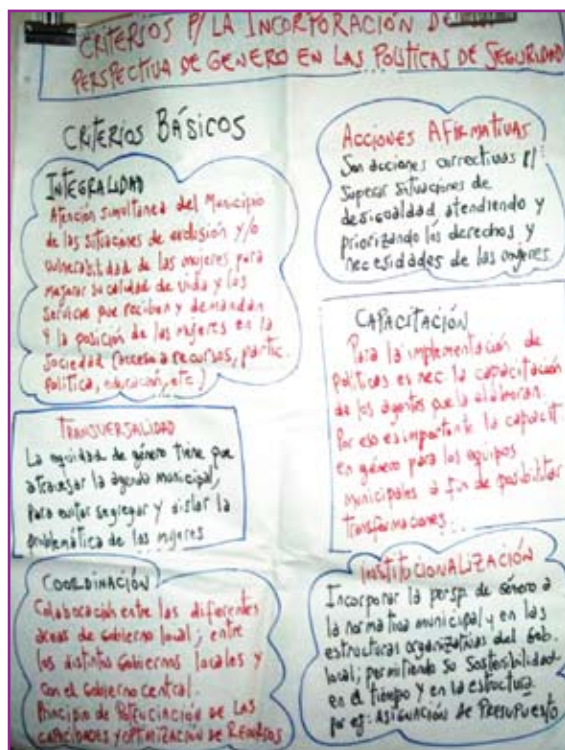 CRITERIOS P/ LA INCORPORACIÓN DE
PERSPECTIVA DE GENERO EN LAS POLÍTICAS DE SEGURIDAD
CRITERIOS BÁSICOS
INTEGRALIDAD
Atención simultanea del Municipio
de las situaciones de exclusión y/o
vulnerabilidad de las mujeres para
mejorar su calidad de vida y los
servicios que reciben y demandan
y la posición de las mujeres en la
sociedad (acceso a recursos, partic.
política, educación, etc)
TRANSVERSALIDAD
La equidad de género tiene que
atravesar la agenda municipal,
para evitar segregar y aislar la
problemática de las mujeres
COORDINACIÓN
Colaboración entre las diferentes
áreas de gobierno local; entre
los distintos gobiernos locales y
con el gobierno central.
Principio de POTENCIACIÓN DE LAS
CAPACIDADES Y OPTIMIZACIÓN DE RECURSOS
ACCIONES AFIRMATIVAS
Son acciones correctivas p/
superar situaciones de
desigualdad, atendiendo y
priorizando los derechos y
necesidades de las mujeres.
CAPACITACIÓN
Para la implementación de
políticas es nec. la capacitación
de los agentes que la elaboran.
Por eso es importante la capacit.
en género para los equipos
municipales a fin de posibilitar
transformaciones.
INSTITUCIONALIZACIÓN
Incorporar la persp. de género a
la normativa municipal y en las
estructuras organizativas del Gob.
local; permitiendo su sostenibilidad
en el tiempo y en la estructura.
por ej: ASIGNACIÓN DE PRESUPUESTO